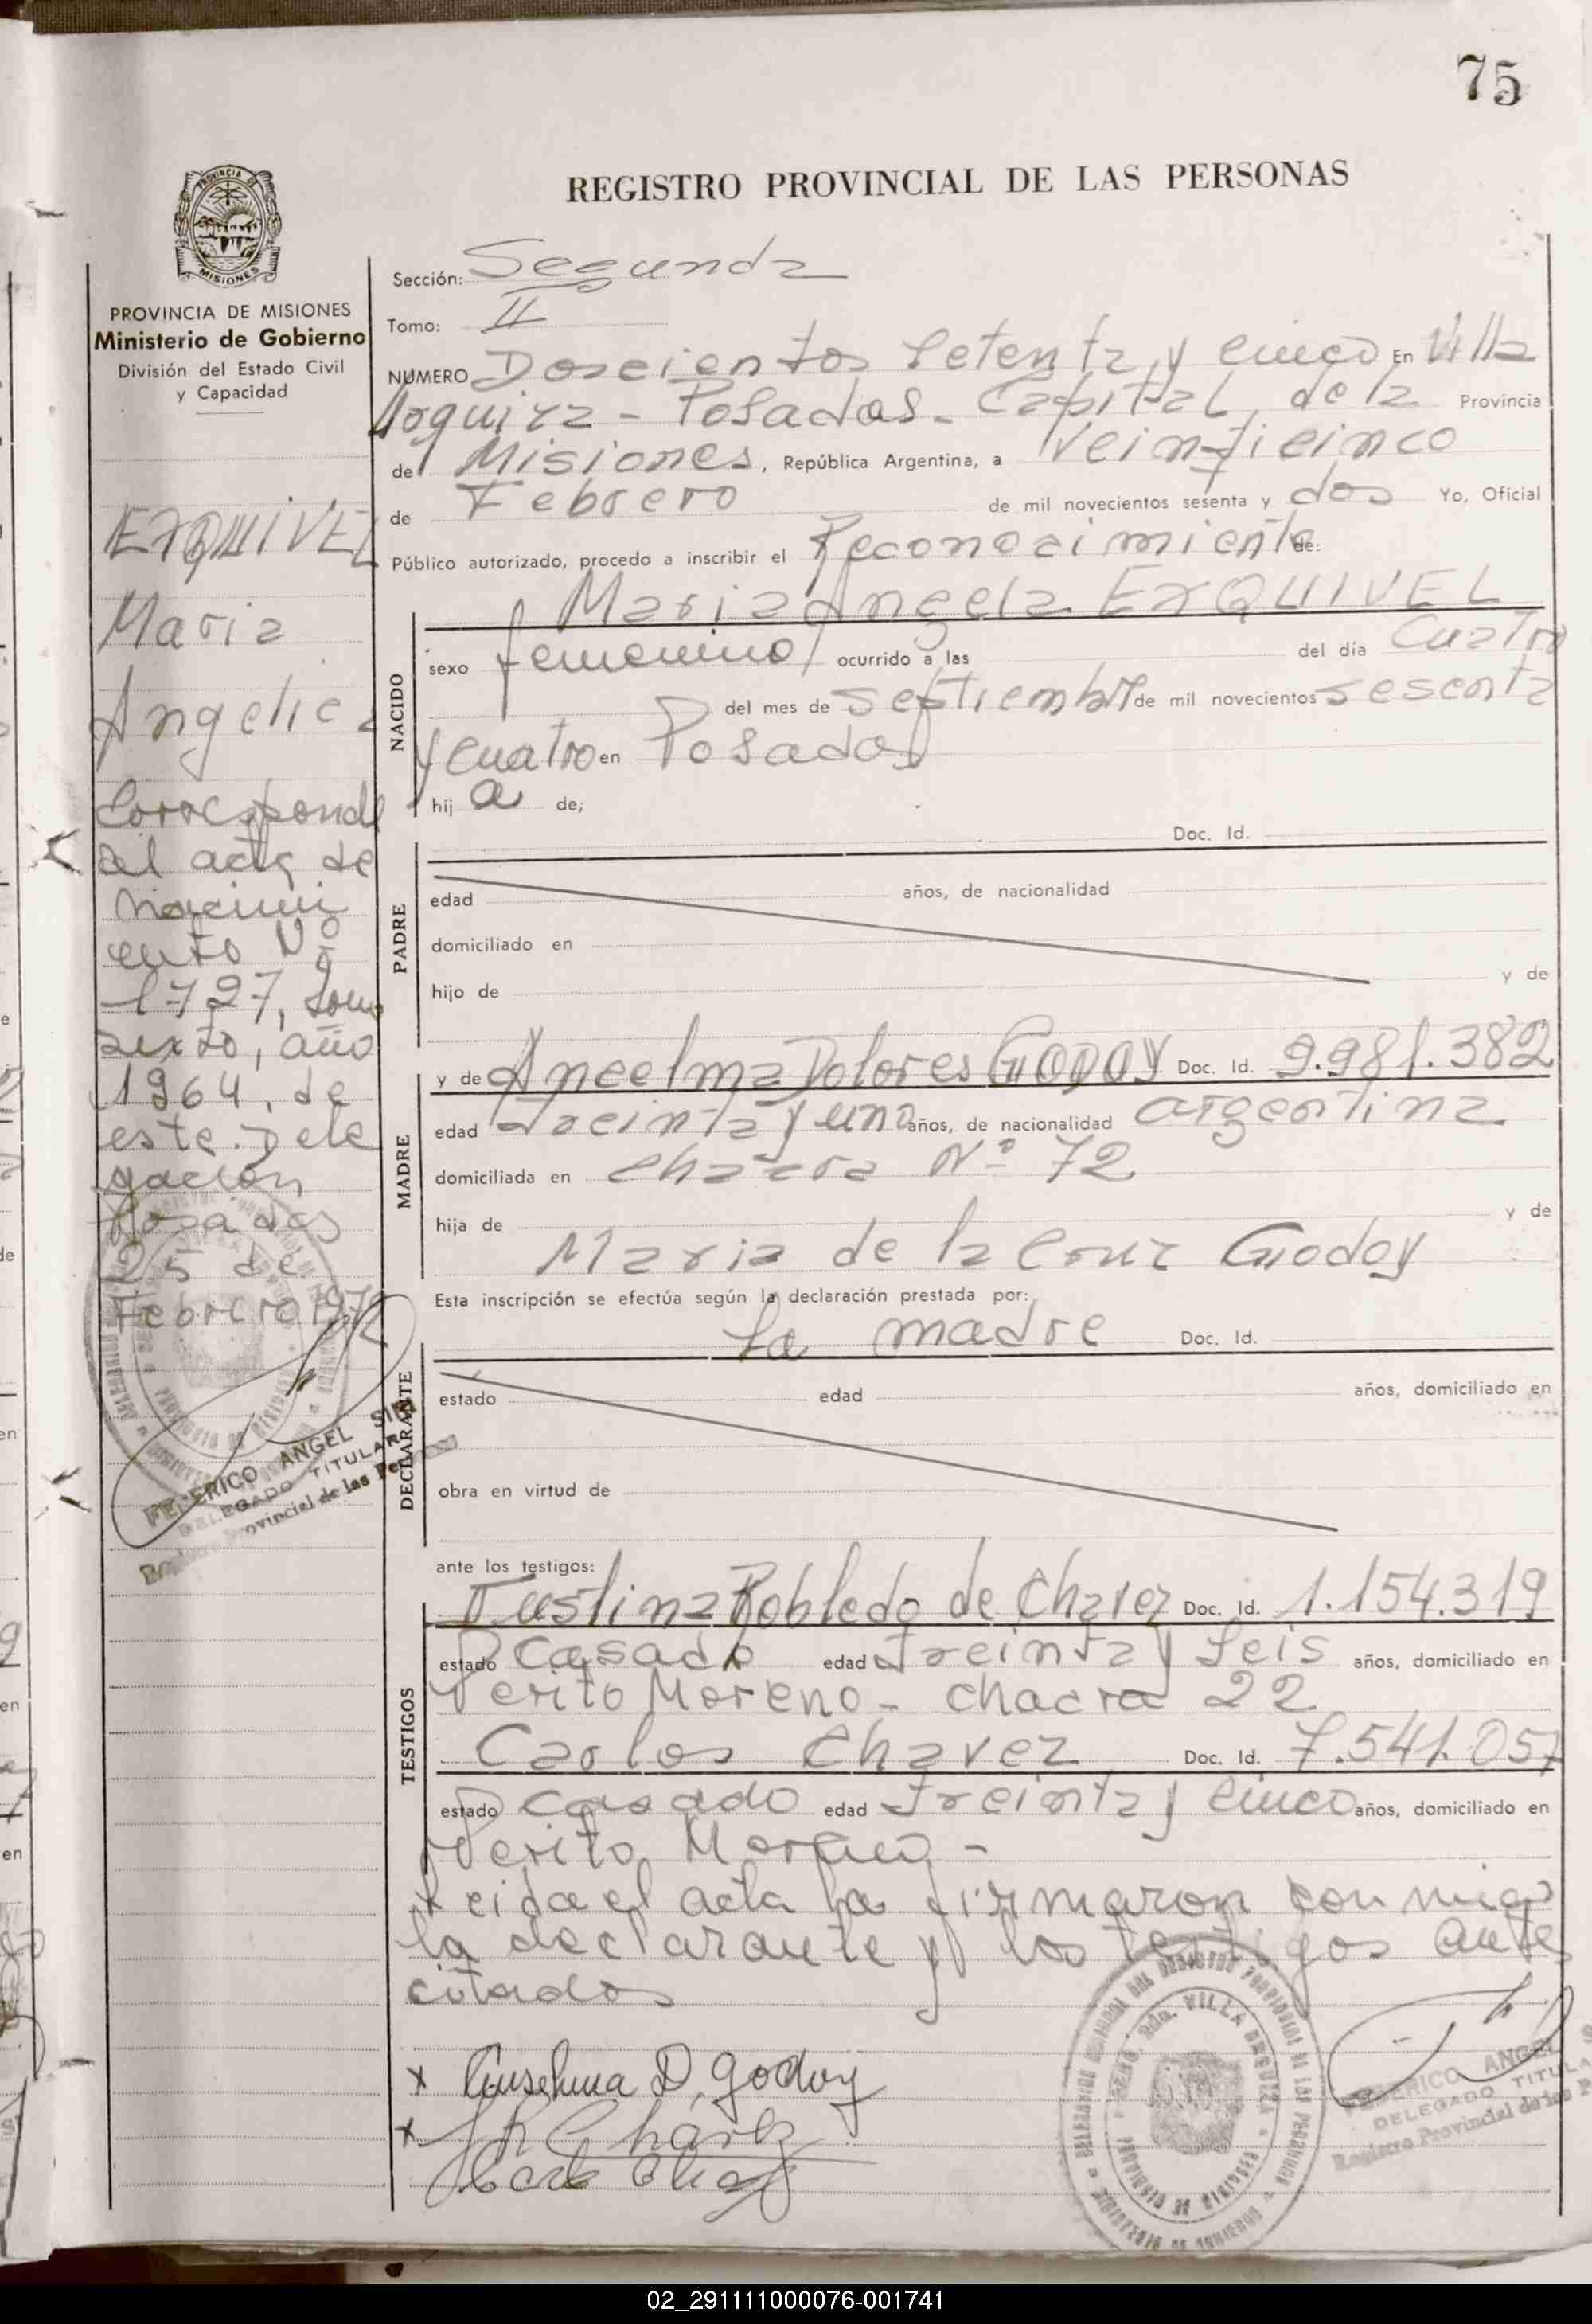 75
REGISTRO PROVINCIAL DE LAS PERSONAS
PROVINCIA DE MISIONES
PROVINCIA DE MISIONES
Ministerio de Gobierno
División del Estado Civil
y Capacidad
EXQUIVEL
Maria
Angelica
Corresponde
al acta de
Nacimi
ento Nº
1727, tomo
sexto, año
1964, de
este Dele
gación
Posadas
25 de
Febrero 1972
FEDERICO ANGEL
DELEGADO TITULAR
Registro Provincial de las Personas
Sección: Segunda
Tomo: II
NUMERO Doscientos Setenta y cinco En Villa
Urquiza - Posadas - Capital, de la Provincia
de Misiones, República Argentina, a Veinticinco
de Febrero de mil novecientos sesenta y dos Yo, Oficial
Público autorizado, procedo a inscribir el Reconocimiento de:
Maria Angela EXQUIVEL
NACIDO
sexo femenino ocurrido a las del día Cuatro
del mes de Septiembre de mil novecientos sesenta
y cuatro en Posadas
hij a de;
Doc. Id.
PADRE
edad años, de nacionalidad
domiciliado en
hijo de y de
y de Ancelma Dolores GODOY Doc. Id. 9.981.382
MADRE
edad Treinta y uno años, de nacionalidad argentina
domiciliada en Chacra Nº 72
hija de y de
Maria de la Cruz Godoy
Esta inscripción se efectúa según la declaración prestada por:
la madre Doc. Id.
DECLARANTE
estado edad años, domiciliado en
obra en virtud de
ante los testigos:
Robledo de Chavez Doc. Id. 1.154.319
TESTIGOS
estado Casado edad Treinta y Seis años, domiciliado en
Perito Moreno - chacra 22
Carlos Chavez Doc. Id. 7.541.057
estado Casado edad Treinta y cinco años, domiciliado en
Perito Moreno -
Leida el acta la firmaron con migo
la declarante y los testigos antes
citados
x Anselma D. Godoy
x
FEDERICO ANGEL
DELEGADO TITULAR
Registro Provincial de las P
02_291111000076-001741